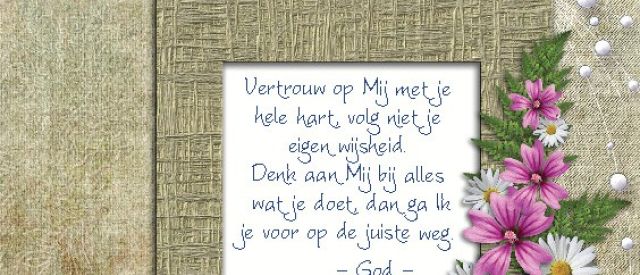 Vertrouw op Mij met je
hele hart, volg niet je
eigen wijsheid.
Denk aan Mij bij alles
wat je doet, dan ga Ik
je voor op de juiste weg.
- God -